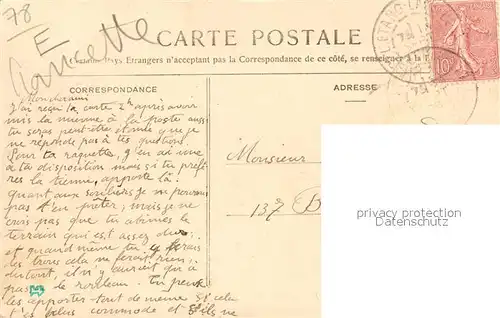 78
E
Lancette
CARTE POSTALE
Certains Pays Etrangers n'acceptant pas la Correspondance de ce côté, se renseigner à la
CORRESPONDANCE
ADRESSE
Mon cher ami
J'ai reçu ta carte 2h après avoir
mis la mienne à la poste aussi
tu seras peut-être étonné que je ne
réponde pas à tes questions.
Pour ta raquette, j'en ai une
à ta disposition mais si tu préfè
res la tienne, apporte là.
Quant aux souliers je ne pourrai
pas t'en prêter, mais je ne
crois pas que tu abîmes le
terrain qui est assez dur,
et quand même tu ferais
des trous cela ne ferait rien,
il n'y aurait qu'à
passer le rouleau. Tu peux
les apporter tout de même si cela
t'est plus commode et s'ils ne
Monsieur
137
10
privacy protection
Datenschutz